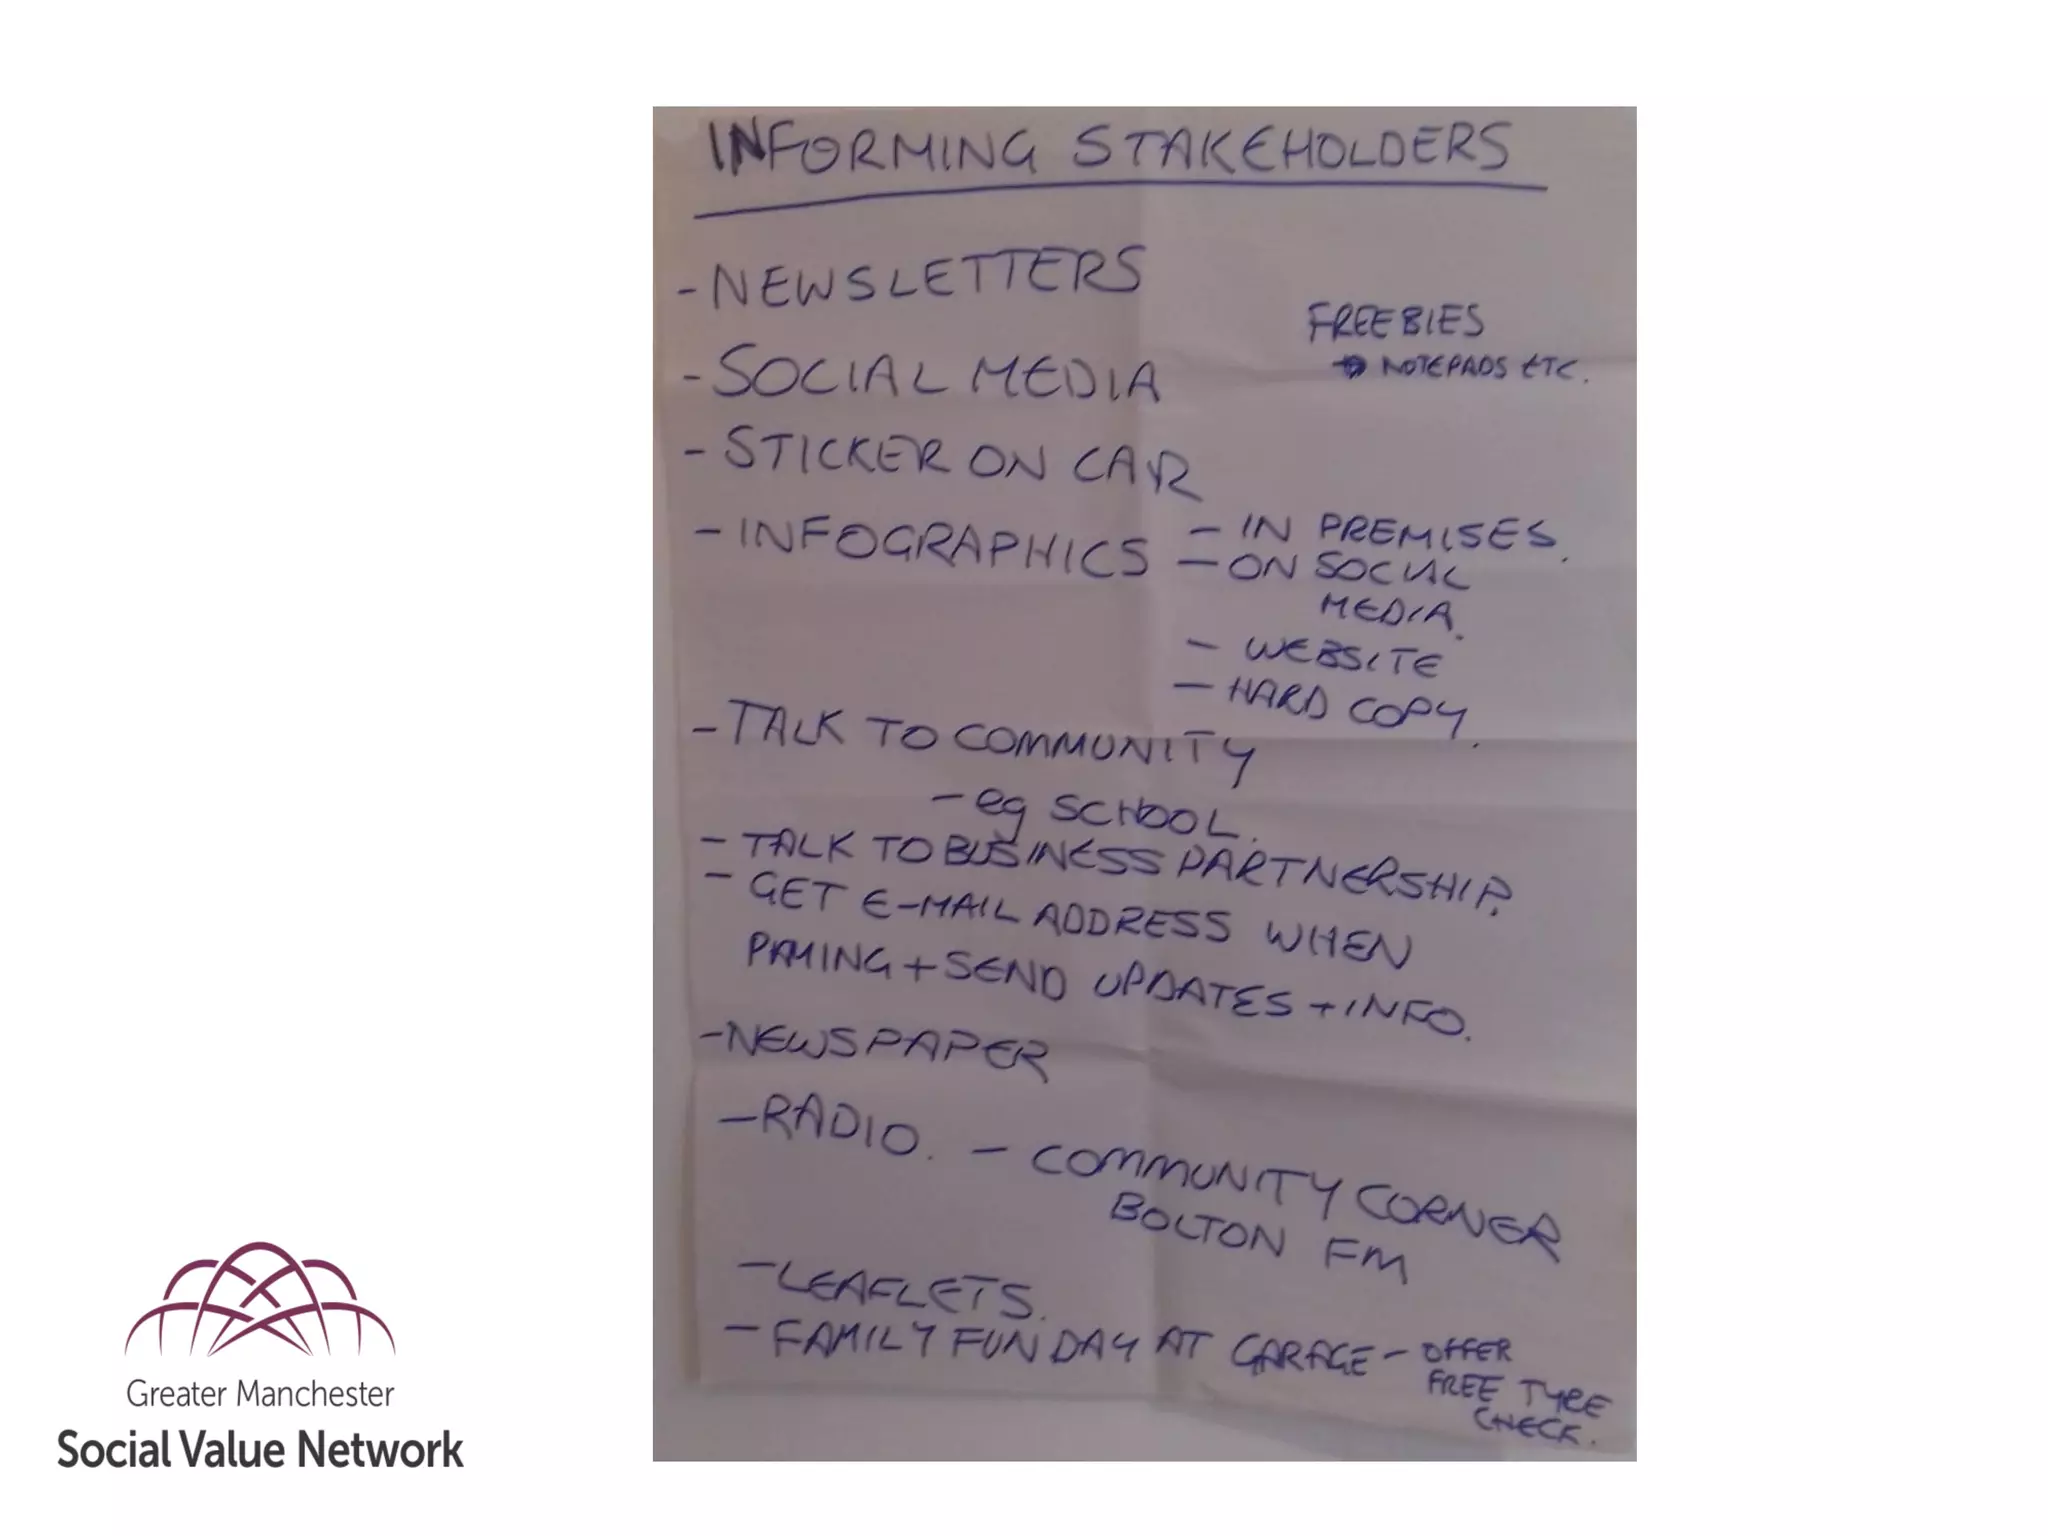 INFORMING STAKEHOLDERS
- NEWSLETTERS
FREEBIES
→ NOTEPADS ETC.
- SOCIAL MEDIA
- STICKER ON CAR
- INFOGRAPHICS - IN PREMISES.
- ON SOCIAL
MEDIA.
- WEBSITE
- HARD COPY.
- TALK TO COMMUNITY
- eg SCHOOL.
- TALK TO BUSINESS PARTNERSHIP.
- GET E-MAIL ADDRESS WHEN
PAYING + SEND UPDATES + INFO.
- NEWSPAPER
- RADIO. - COMMUNITY CORNER
BOLTON FM
- LEAFLETS.
- FAMILY FUN DAY AT GARAGE - OFFER
FREE TYRE
CHECK.
Greater Manchester
Social Value Network